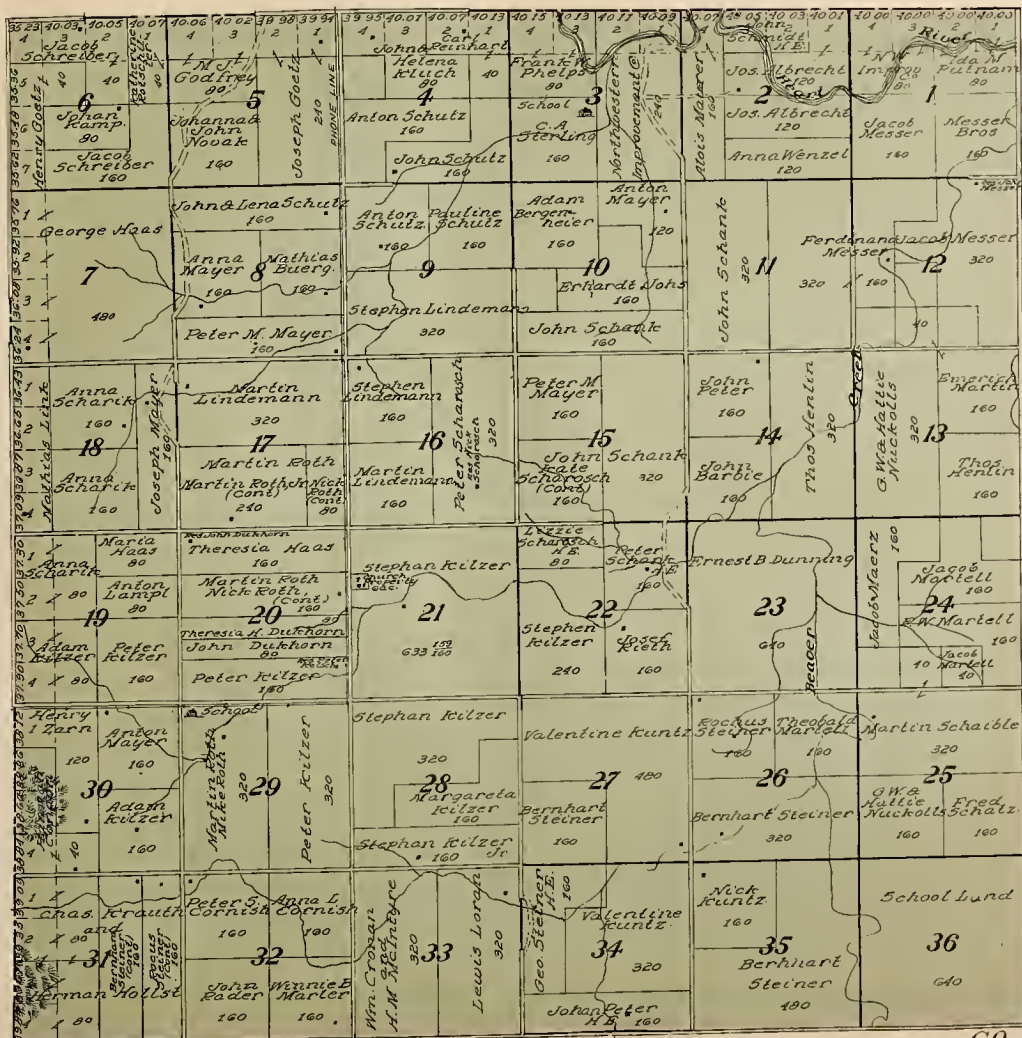 36 23 40.03 40.05 40 07 40.06 40 02 39 98 39 94 39 95 40.01 40.07 40.13 40 15 40 13 40 11 40.09 40.07 40 05 40 03 40 01 40 00 40.00 40.00 40.00
4 3 2 1 4 3 2 1 4 3 2 1 4 3 2 1 4 3 2 1 4 3 2 1
Jacob
Schreiber
40
40
40
Henry Goetz
6
Johan
Kamp.
80
Jacob
Schreiber
160
M.J.
Godfrey
80
5
Johanna &
John
Novak
160
Joseph Goetz
240
PHONE LINE
Carl
John & Reinhart
Helena
Kluch
80
40
4
Anton Schutz
160
John Schutz
160
Frank W.
Phelps
80
School
3
C. A.
Sterling
160
Northwestern
Improvement Co
240
Alois Mayrer
160
John
Schmidt
H.E.
Jos. Albrecht
120
Heart
River
2
Jos. Albrecht
120
Anna Wenzel
120
N W
Improv
Co
80
Ida M
Putnam
80
1
Jacob
Messer
160
Messer
Bros
160
George Haas
7
480
John & Lena Schutz
160
Anna
Mayer
160
8
Mathias
Buerg.
160
Peter M. Mayer
160
Anton
Schutz
160
Pauline
Schutz
160
9
Stephen Lindemann
320
Adam
Bergenheier
160
Anton
Mayer
120
10
Erhardt Johs
160
John Schank
160
John Schank
320
11
320
Ferdinand
Messer
160
Jacob Messer
12
320
40
Mathias Link
Anna
Scharik
160
18
Anna
Scharik
160
Joseph Mayer
160
Martin
Lindemann
320
17
Martin Roth
Martin Roth Jr
(Cont)
240
Nick
Roth
(Cont)
80
Stephen
Lindemann
160
16
Martin
Lindemann
160
Peter Scharosch
Res Nick
Scharosch
320
Peter M
Mayer
160
15
John Schank
320
Kate
Scharosch
(Cont)
160
John
Peter
160
14
John
Barbie
160
Thos Henlin
320
Creek
G.W. & Hattie
Nuckolls
320
Emerich
Martin
160
13
Thos
Henlin
160
Anna
Scharik
80
Maria
Haas
80
Anton
Lampl
80
19
Adam
Kilzer
80
Peter
Kilzer
160
Res John Dukhorn
Theresia Haas
160
Martin Roth
Nick Roth,
(Cont)
160
20
Theresia H. Dukhorn
80
John Dukhorn
80
Peter Kilzer
160
Stephan Kilzer
Church
Property
6 ac.
21
633 159/160
Lizzie
Scharosch
H.E.
80
Peter
Schank
H.E.
160
22
Stephen
Kilzer
240
Josef
Rieth
160
Ernest B Dunning
23
640
Beaver
Jacob Maerz
160
Jacob
Martell
160
24
F.W. Martell
160
40
Jacob
Martell
40
Henry
Zarn
120
Anton
Mayer
160
30
Adam
Kilzer
160
40
School
Martin Roth
Nick Roth
320
29
Peter Kilzer
320
Stephan Kilzer
320
28
Margareta
Kilzer
160
Stephan Kilzer
Jr
160
Valentine Kuntz
27
480
Bernhart
Steiner
160
Rochus
Steiner
160
Theobald
Martell
160
26
Bernhart Steiner
320
Martin Schaible
320
25
G.W. &
Hattie
Nuckolls
160
Fred
Schatz.
160
Chas. Krauth
and
80
31
Bernhard
Steiner
(Cont)
160
Rocus
Steiner
(Cont)
160
Herman Hollst
80
Peter S.
Cornish
160
Anna L
Cornish
160
32
John
Rader
160
Winnie E
Marter
160
Wm. Cronan
and
H. M McIntyre
320
33
Lewis Loran
320
Geo. Steiner
H.E.
160
Valentine
Kuntz.
34
320
Johan Peter
H E
160
Nick
Kuntz
160
35
Berhhart
Steiner
480
School Land
36
640